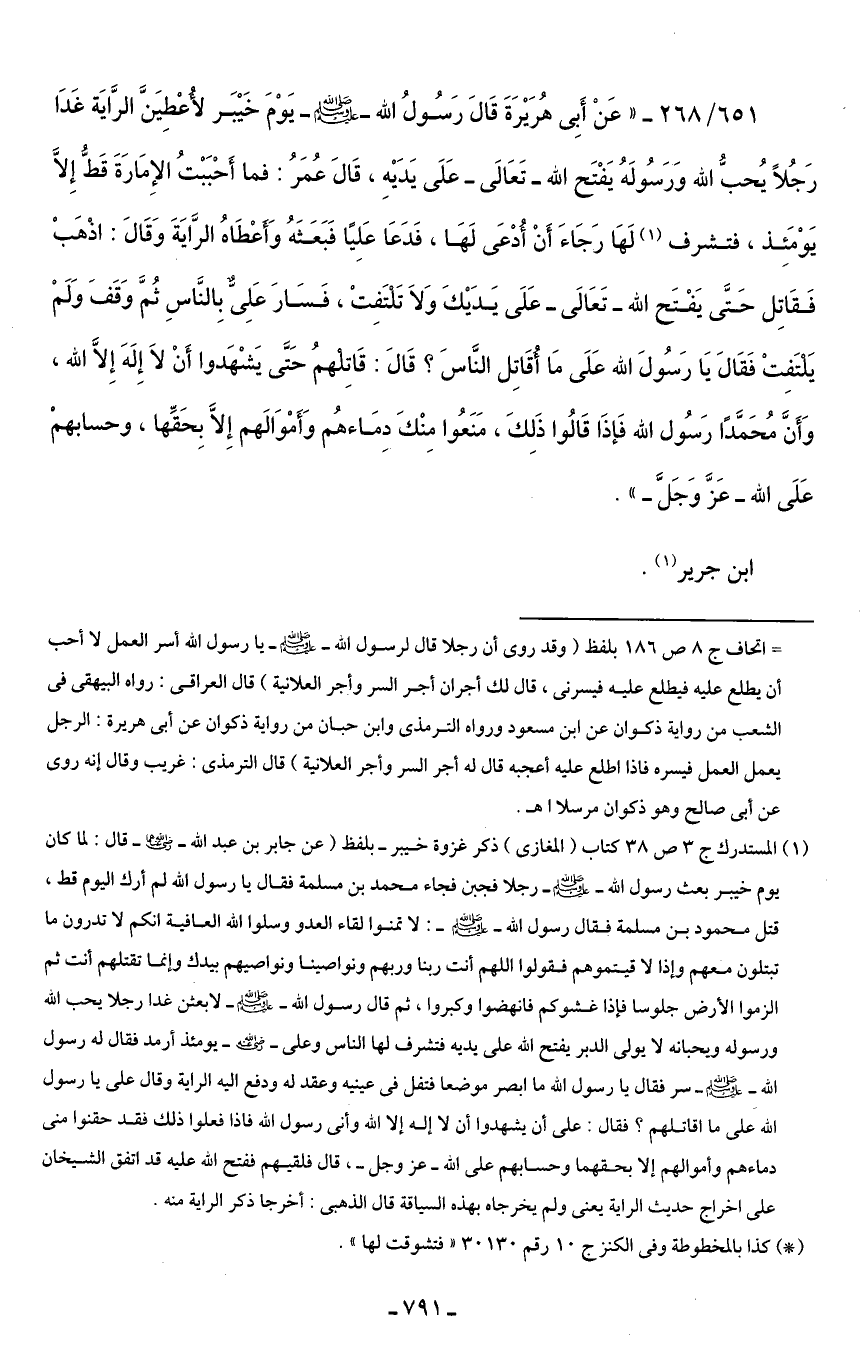 ٢٦٨/٦٥١ ـ « عَنْ أَبِى هُرَيْرَةَ قَالَ رَسُولُ الله ـ ﷺ ـ يَوْمَ خَيْبَر لأُعْطِيَنَّ الرَّايَةَ غَدَا
رَجُلاً يُحبُّ الله وَرَسُولَهُ يَفْتَح الله ـ تَعَالَى ـ عَلَى يَدَيْهِ ، قَالَ عُمَرُ : فما أَحْبَبْتُ الإمَارَةَ قَطُّ إِلاَّ
يَوْمَئِذ ، فتشرف (١) لَهَا رَجَاءَ أَنْ أُدْعَى لَهَا ، فَدَعَا عَليًا فَبَعَثَهُ وَأَعْطَاهُ الرَّايَةَ وَقَالَ : اذْهَبْ
فَقَاتِل حَتَّى يَفْتَح الله ـ تَعَالَى ـ عَلَى يَدَيْكَ وَلاَ تَلْتَفتْ ، فَسَارَ عَلىٌّ بِالنَّاسِ ثُمَّ وَقَفَ وَلَمْ
يَلْتَفتْ فَقَالَ يَا رَسُولَ الله عَلَى مَا أُقَاتل النَّاسَ ؟ قَالَ : قَاتلْهمُ حَتَّى يَشْهَدوا أَنْ لاَ إِلَهَ إِلاَّ الله ،
وَأَنَّ مُحَمَّدًا رَسُول الله فَإِذَا قَالُوا ذَلِكَ ، مَنَعُوا مِنْكَ دِمَاءهُم وَأَمْوَالَهم إِلاَّ بحَقِّها ، وحسابهمْ
عَلَى الله ـ عَزَّ وَجَلَّ ـ » .
ابن جرير (١) .
= اتحاف ج ٨ ص ١٨٦ بلفظ ( وقد روى أن رجلا قال لرسول الله ـ ﷺ ـ يا رسول الله أسر العمل لا أحب
أن يطلع عليه فيطلع عليه فيسرنى ، قال لك أجران أجر السر وأجر العلانية ) قال العراقى : رواه البيهقى فى
الشعب من رواية ذكوان عن ابن مسعود ورواه الترمذى وابن حبان من رواية ذكوان عن أبى هريرة : الرجل
يعمل العمل فيسره فاذا اطلع عليه أعجبه قال له أجر السر وأجر العلانية ) قال الترمذى : غريب وقال إنه روى
عن أبى صالح وهو ذكوان مرسلا ا هـ .
(١) المستدرك ج ٣ ص ٣٨ كتاب ( المغازى ) ذكر غزوة خيبر ـ بلفظ ( عن جابر بن عبد الله ـ رضي الله عنهما ـ قال : لما كان
يوم خيبر بعث رسول الله ـ ﷺ ـ رجلا فجبن فجاء محمد بن مسلمة فقال يا رسول الله لم أرك اليوم قط ،
قتل محمود بن مسلمة فقال رسول الله ـ ﷺ ـ : لا تمنوا لقاء العدو وسلوا الله العافية انكم لا تدرون ما
تبتلون معهم وإذا لا قيتموهم فقولوا اللهم أنت ربنا وربهم ونواصينا ونواصيهم بيدك وإنما تقتلهم أنت ثم
الزموا الأرض جلوسا فإذا غشوكم فانهضوا وكبروا ، ثم قال رسول الله ـ ﷺ ـ لابعثن غدا رجلا يحب الله
ورسوله ويحبانه لا يولى الدبر يفتح الله على يديه فتشرف لها الناس وعلى ـ رضي الله عنه ـ يومئذ أرمد فقال له رسول
الله ـ ﷺ ـ سر فقال يا رسول الله ما ابصر موضعا فتفل فى عينيه وعقد له ودفع اليه الراية وقال على يا رسول
الله على ما اقاتلهم ؟ فقال : على أن يشهدوا أن لا إله إلا الله وأنى رسول الله فاذا فعلوا ذلك فقد حقنوا منى
دماءهم وأموالهم إلا بحقهما وحسابهم على الله ـ عز وجل ـ ، قال فلقيهم ففتح الله عليه قد اتفق الشيخان
على اخراج حديث الراية يعنى ولم يخرجاه بهذه السياقة قال الذهبى : أخرجا ذكر الراية منه .
(*) كذا بالمخطوطة وفى الكنز ج ١٠ رقم ٣٠١٣٠ « فتشوقت لها » .
ـ ٧٩١ ـ